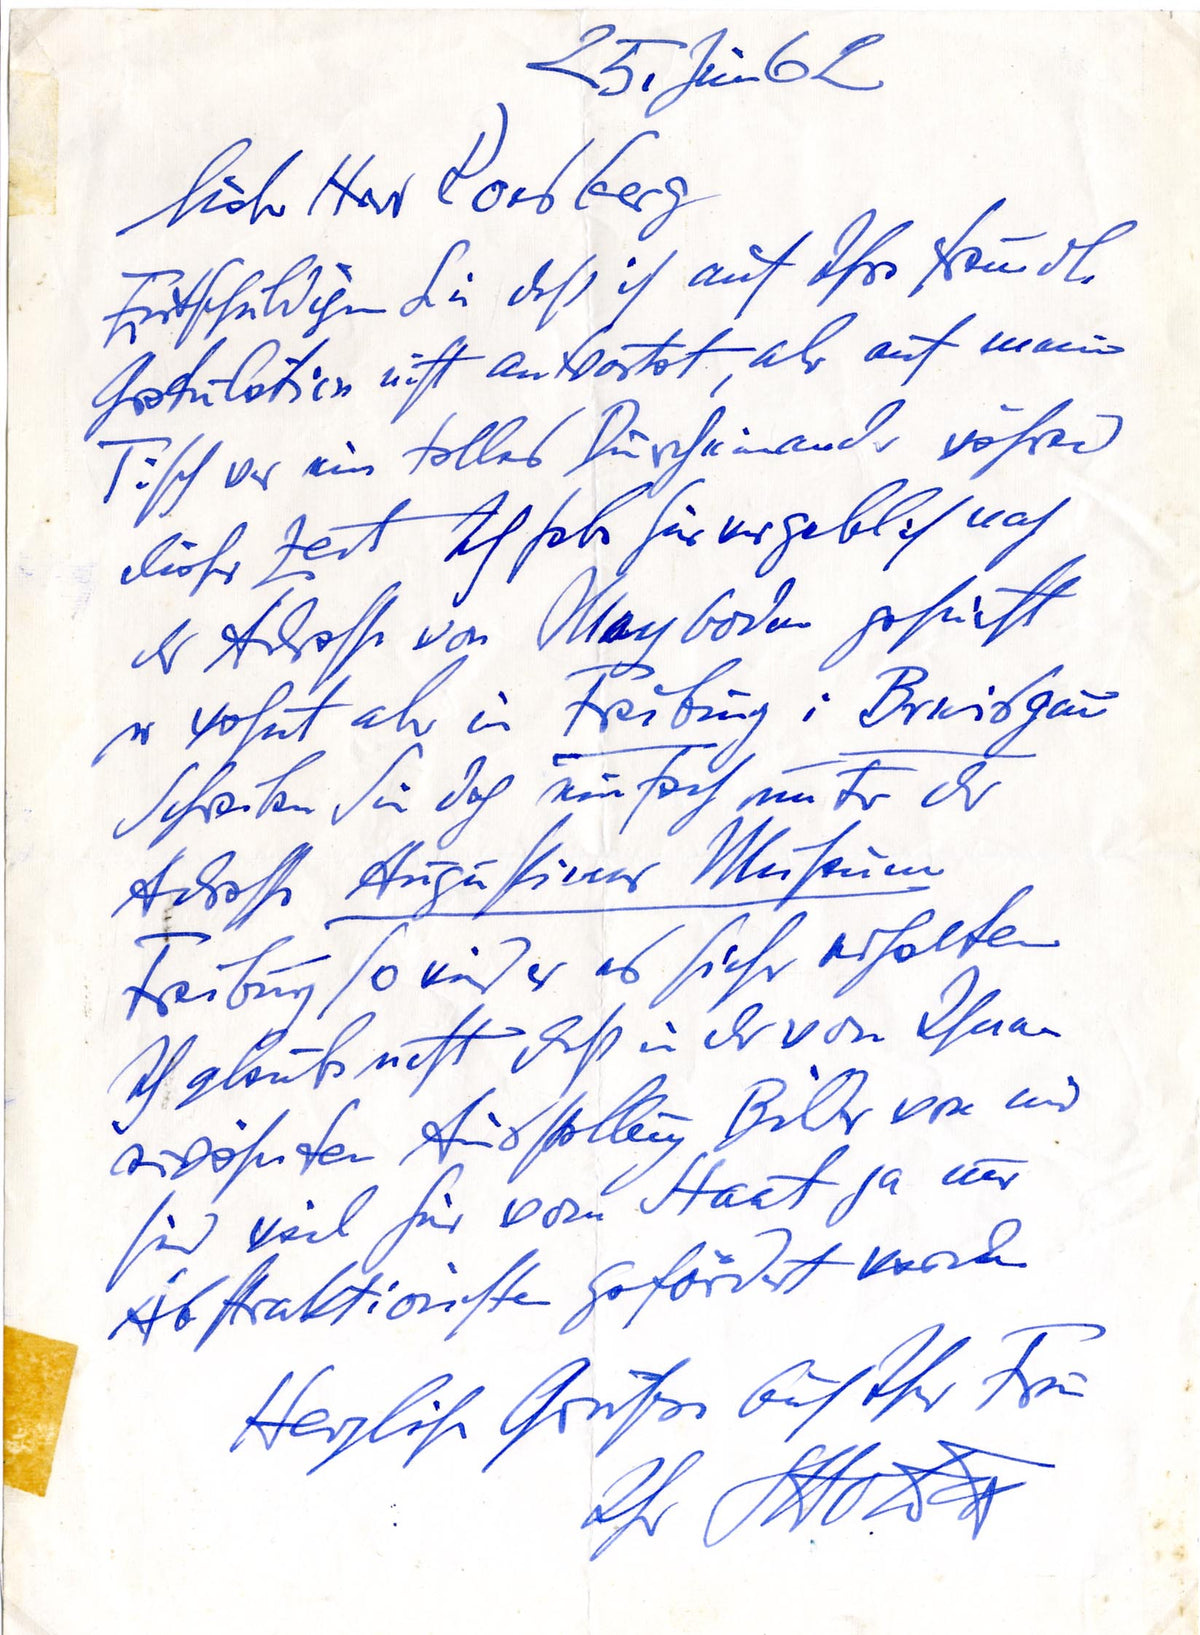 25. Juni 62
Lieber Herr Romberg
Entschuldigen Sie daß ich auf Ihre freundl.
Gratulation nicht antwortet, aber auf meinem
Tisch war ein tolles Durcheinander während
dieser Zeit Ich habe hier vergeblich nach
der Adresse von Mayboden gesucht
er wohnt aber in Freiburg i Breisgau
Schreiben Sie doch einfach unter der
Adresse Augustiner Museum
Freiburg so wird er es sicher erhalten
Ich glaube nicht daß in der von Ihnen
erwähnten Ausstellung Bilder von mir
sind weil hier vom Staat ja nur
Abstraktionisten gefördert werden
Herzliche Grüße auch Ihrer Frau
Ihr